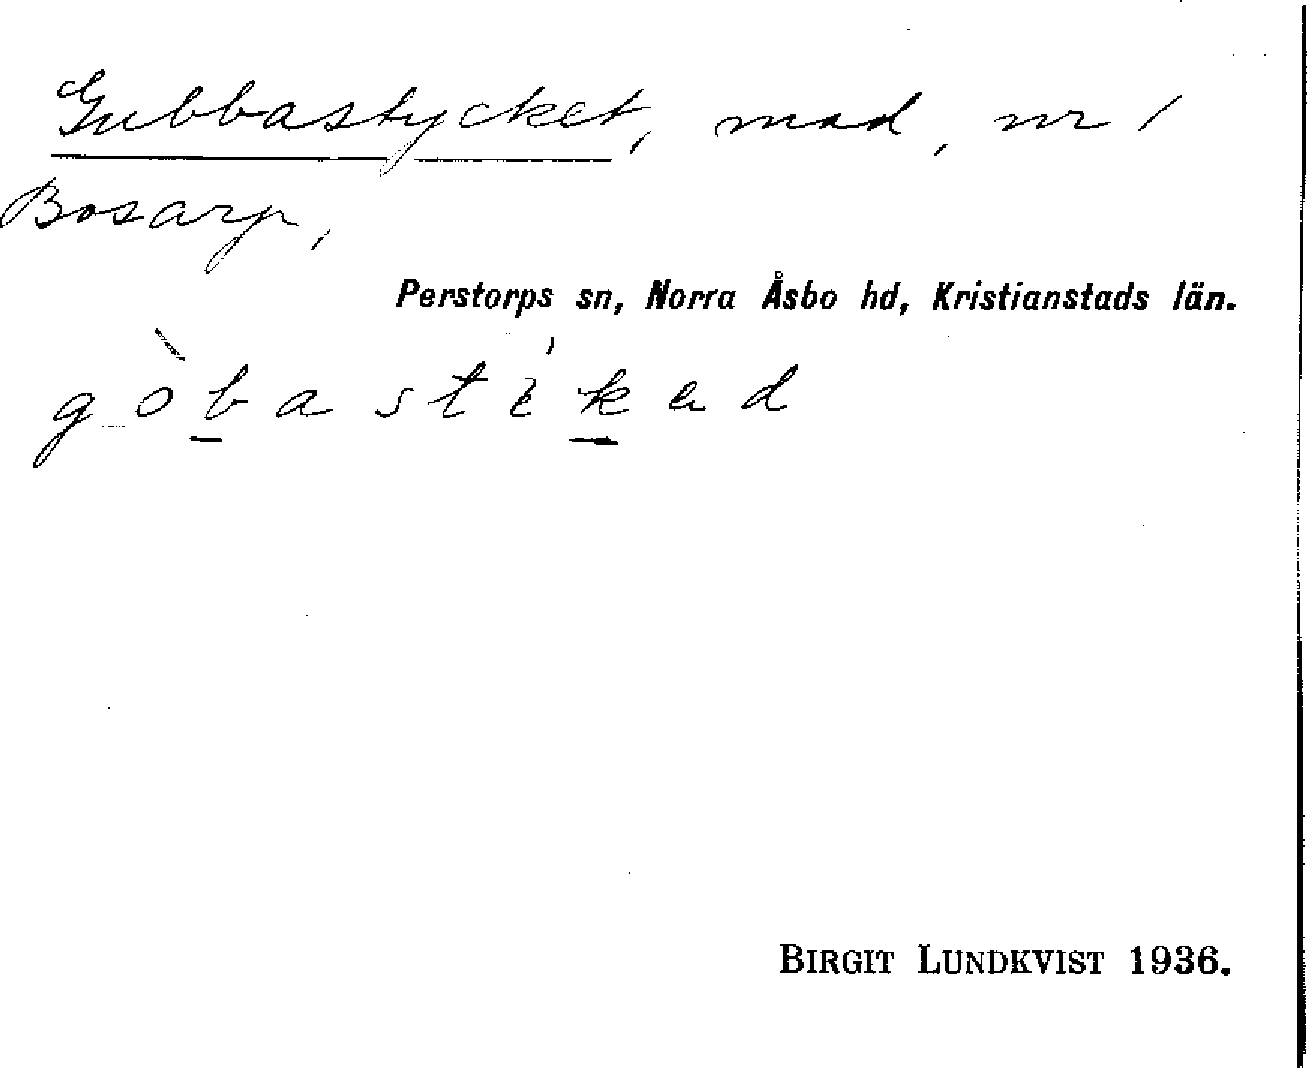 Gubbastycket, mad, nr 1
Bosarp,
Perstorps sn, Norra Åsbo hd, Kristianstads län.
gòbastíkad
BIRGIT LUNDKVIST 1936.